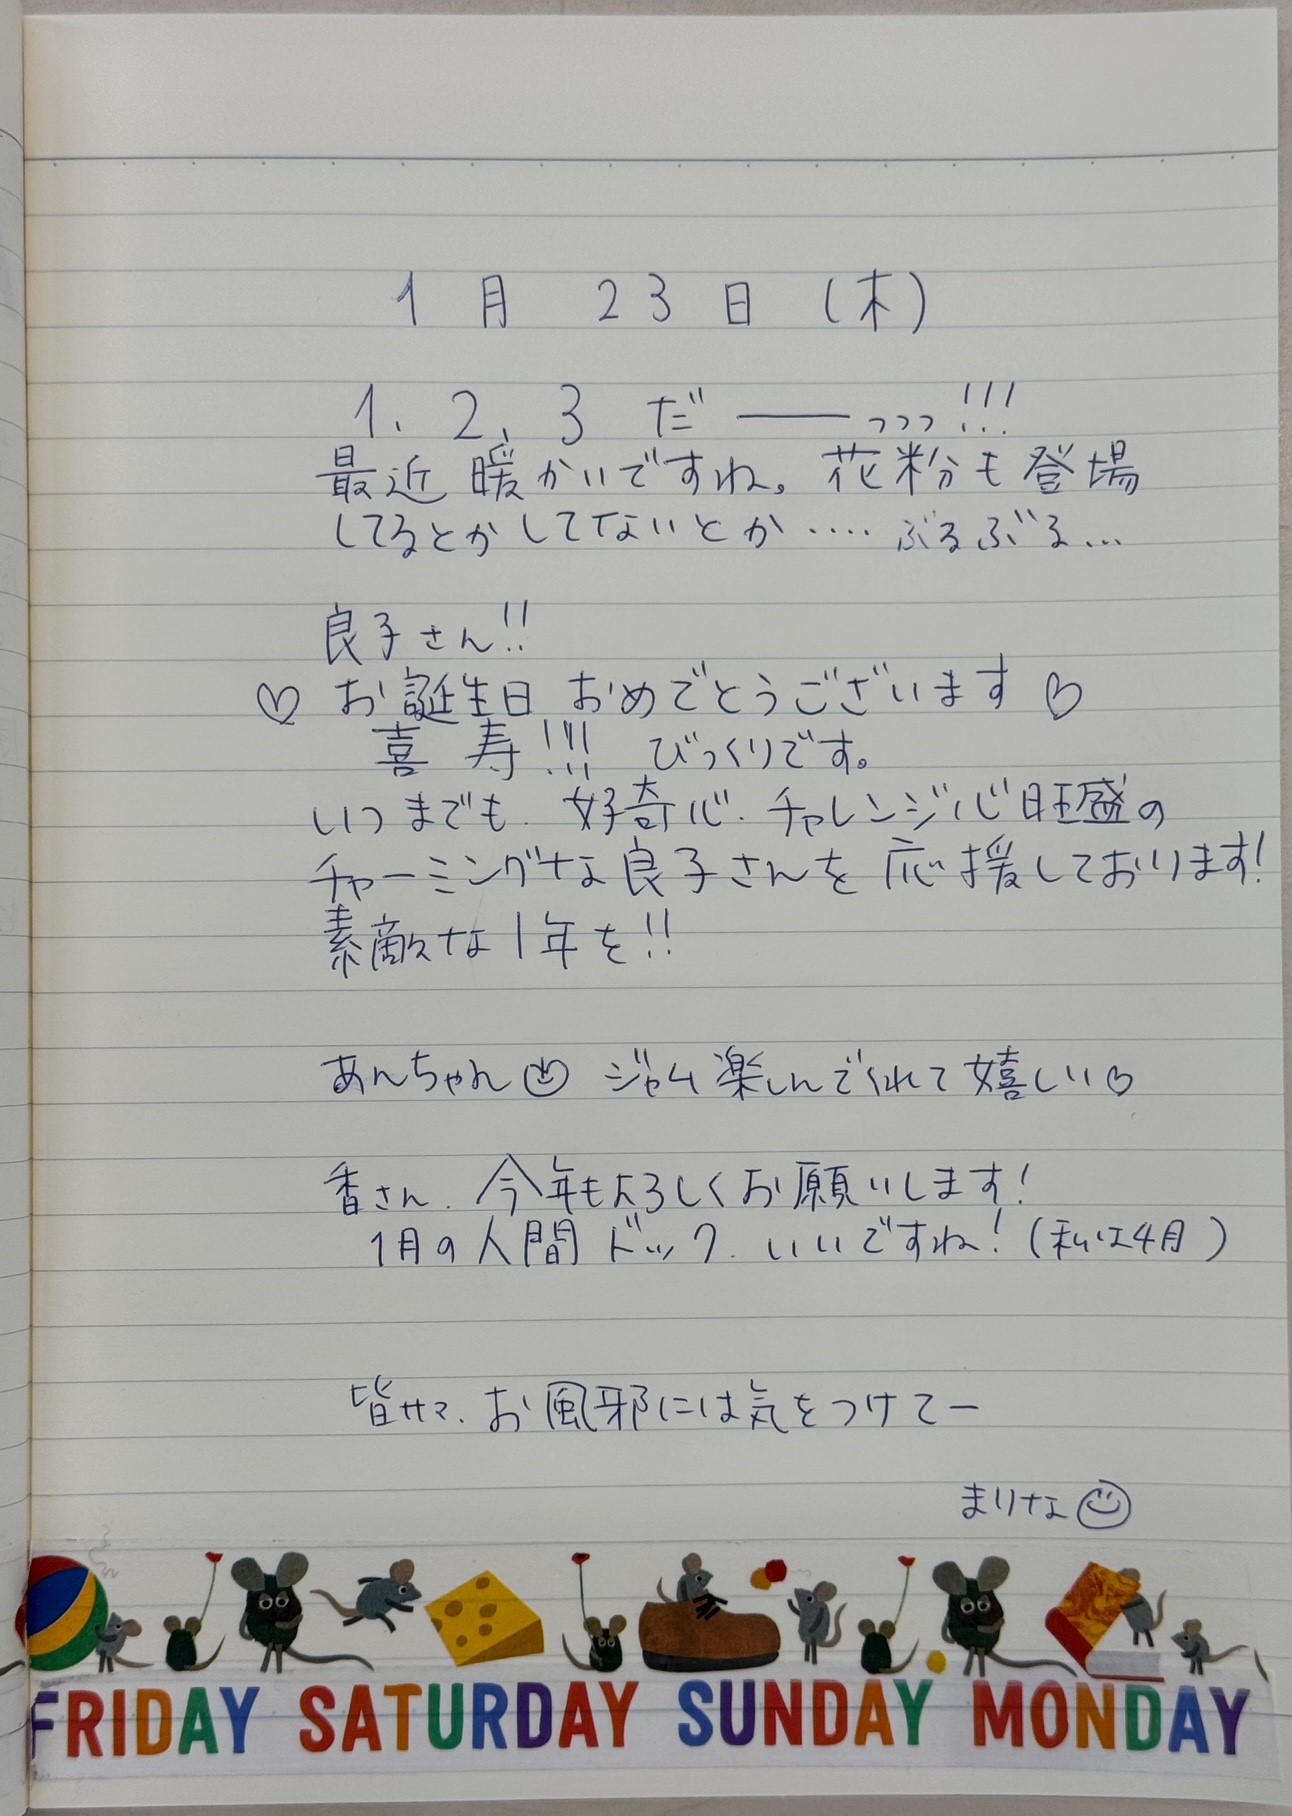 1月23日(木)
1、2、3だ――っっっ!!!
最近暖かいですね。花粉も登場
してるとかしてないとか‥‥ぶるぶる…
良子さん!!
♡お誕生日おめでとうございます♡
喜寿!!! びっくりです。
いつまでも、好奇心、チャレンジ心旺盛の
チャーミングな良子さんを応援しております!
素敵な1年を!!
あんちゃん☺ ジャム楽しんでくれて嬉しい♡
香さん、今年もよろしくお願いします!
1月の人間ドック、いいですね!(私は4月)
皆サマ、お風邪には気をつけてー
まりな☺
FRIDAY SATURDAY SUNDAY MONDAY